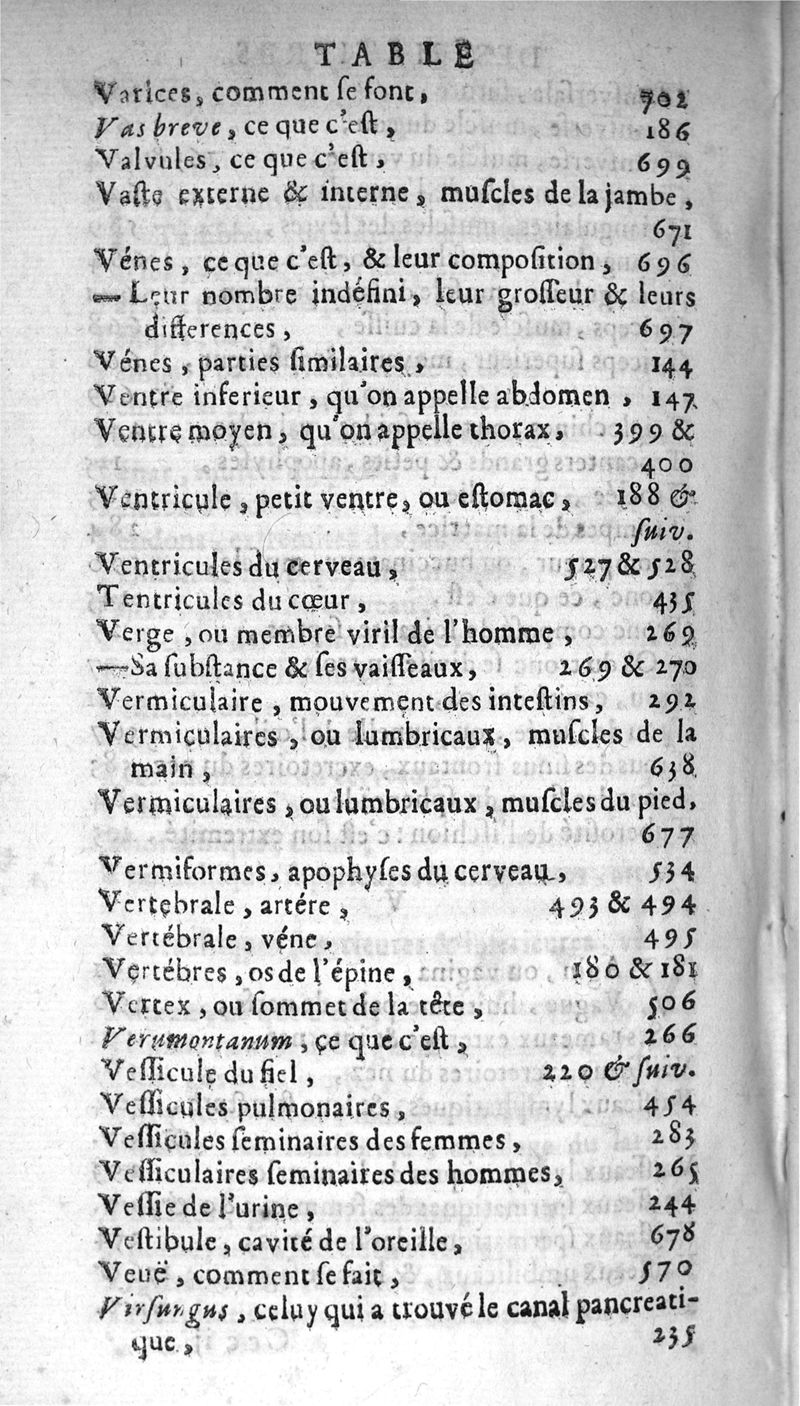 TABLE
Varices, comment ſe font, 702
Vas breve, ce que c'eſt, 186
Valvules, ce que c'eſt, 699
Vaſte externe & interne, muſcles de la jambe,
671
Vénes, ce que c'eſt, & leur compoſition, 696
— Leur nombre indéfini, leur groſſeur & leurs
differences, 697
Vénes, parties ſimilaires, 144
Ventre inferieur, qu'on appelle abdomen, 147
Ventre moyen, qu'on appelle thorax, 399 &
400
Ventricule, petit ventre, ou eſtomac, 188 &
ſuiv.
Ventricules du cerveau, 527 & 528
Tentricules du cœur, 435
Verge, ou membre viril de l'homme, 269
—Sa ſubſtance & ſes vaiſſeaux, 269 & 270
Vermiculaire, mouvement des inteſtins, 292
Vermiculaires, ou lumbricaux, muſcles de la
main, 638
Vermiculaires, ou lumbricaux, muſcles du pied,
677
Vermiformes, apophyſes du cerveau, 534
Vertebrale, artére, 493 & 494
Vertébrale, véne, 495
Vertébres, os de l'épine, 180 & 181
Vertex, ou ſommet de la tête, 506
Verumontanum, ce que c'eſt, 266
Veſſicule du fiel, 220 & ſuiv.
Veſſicules pulmonaires, 454
Veſſicules ſeminaires des femmes, 283
Veſſiculaires ſeminaires des hommes, 265
Veſſie de l'urine, 244
Veſtibule, cavité de l'oreille, 678
Veuë, comment ſe fait, 570
Virſungus, celuy qui a trouvé le canal pancreati-
que, 235